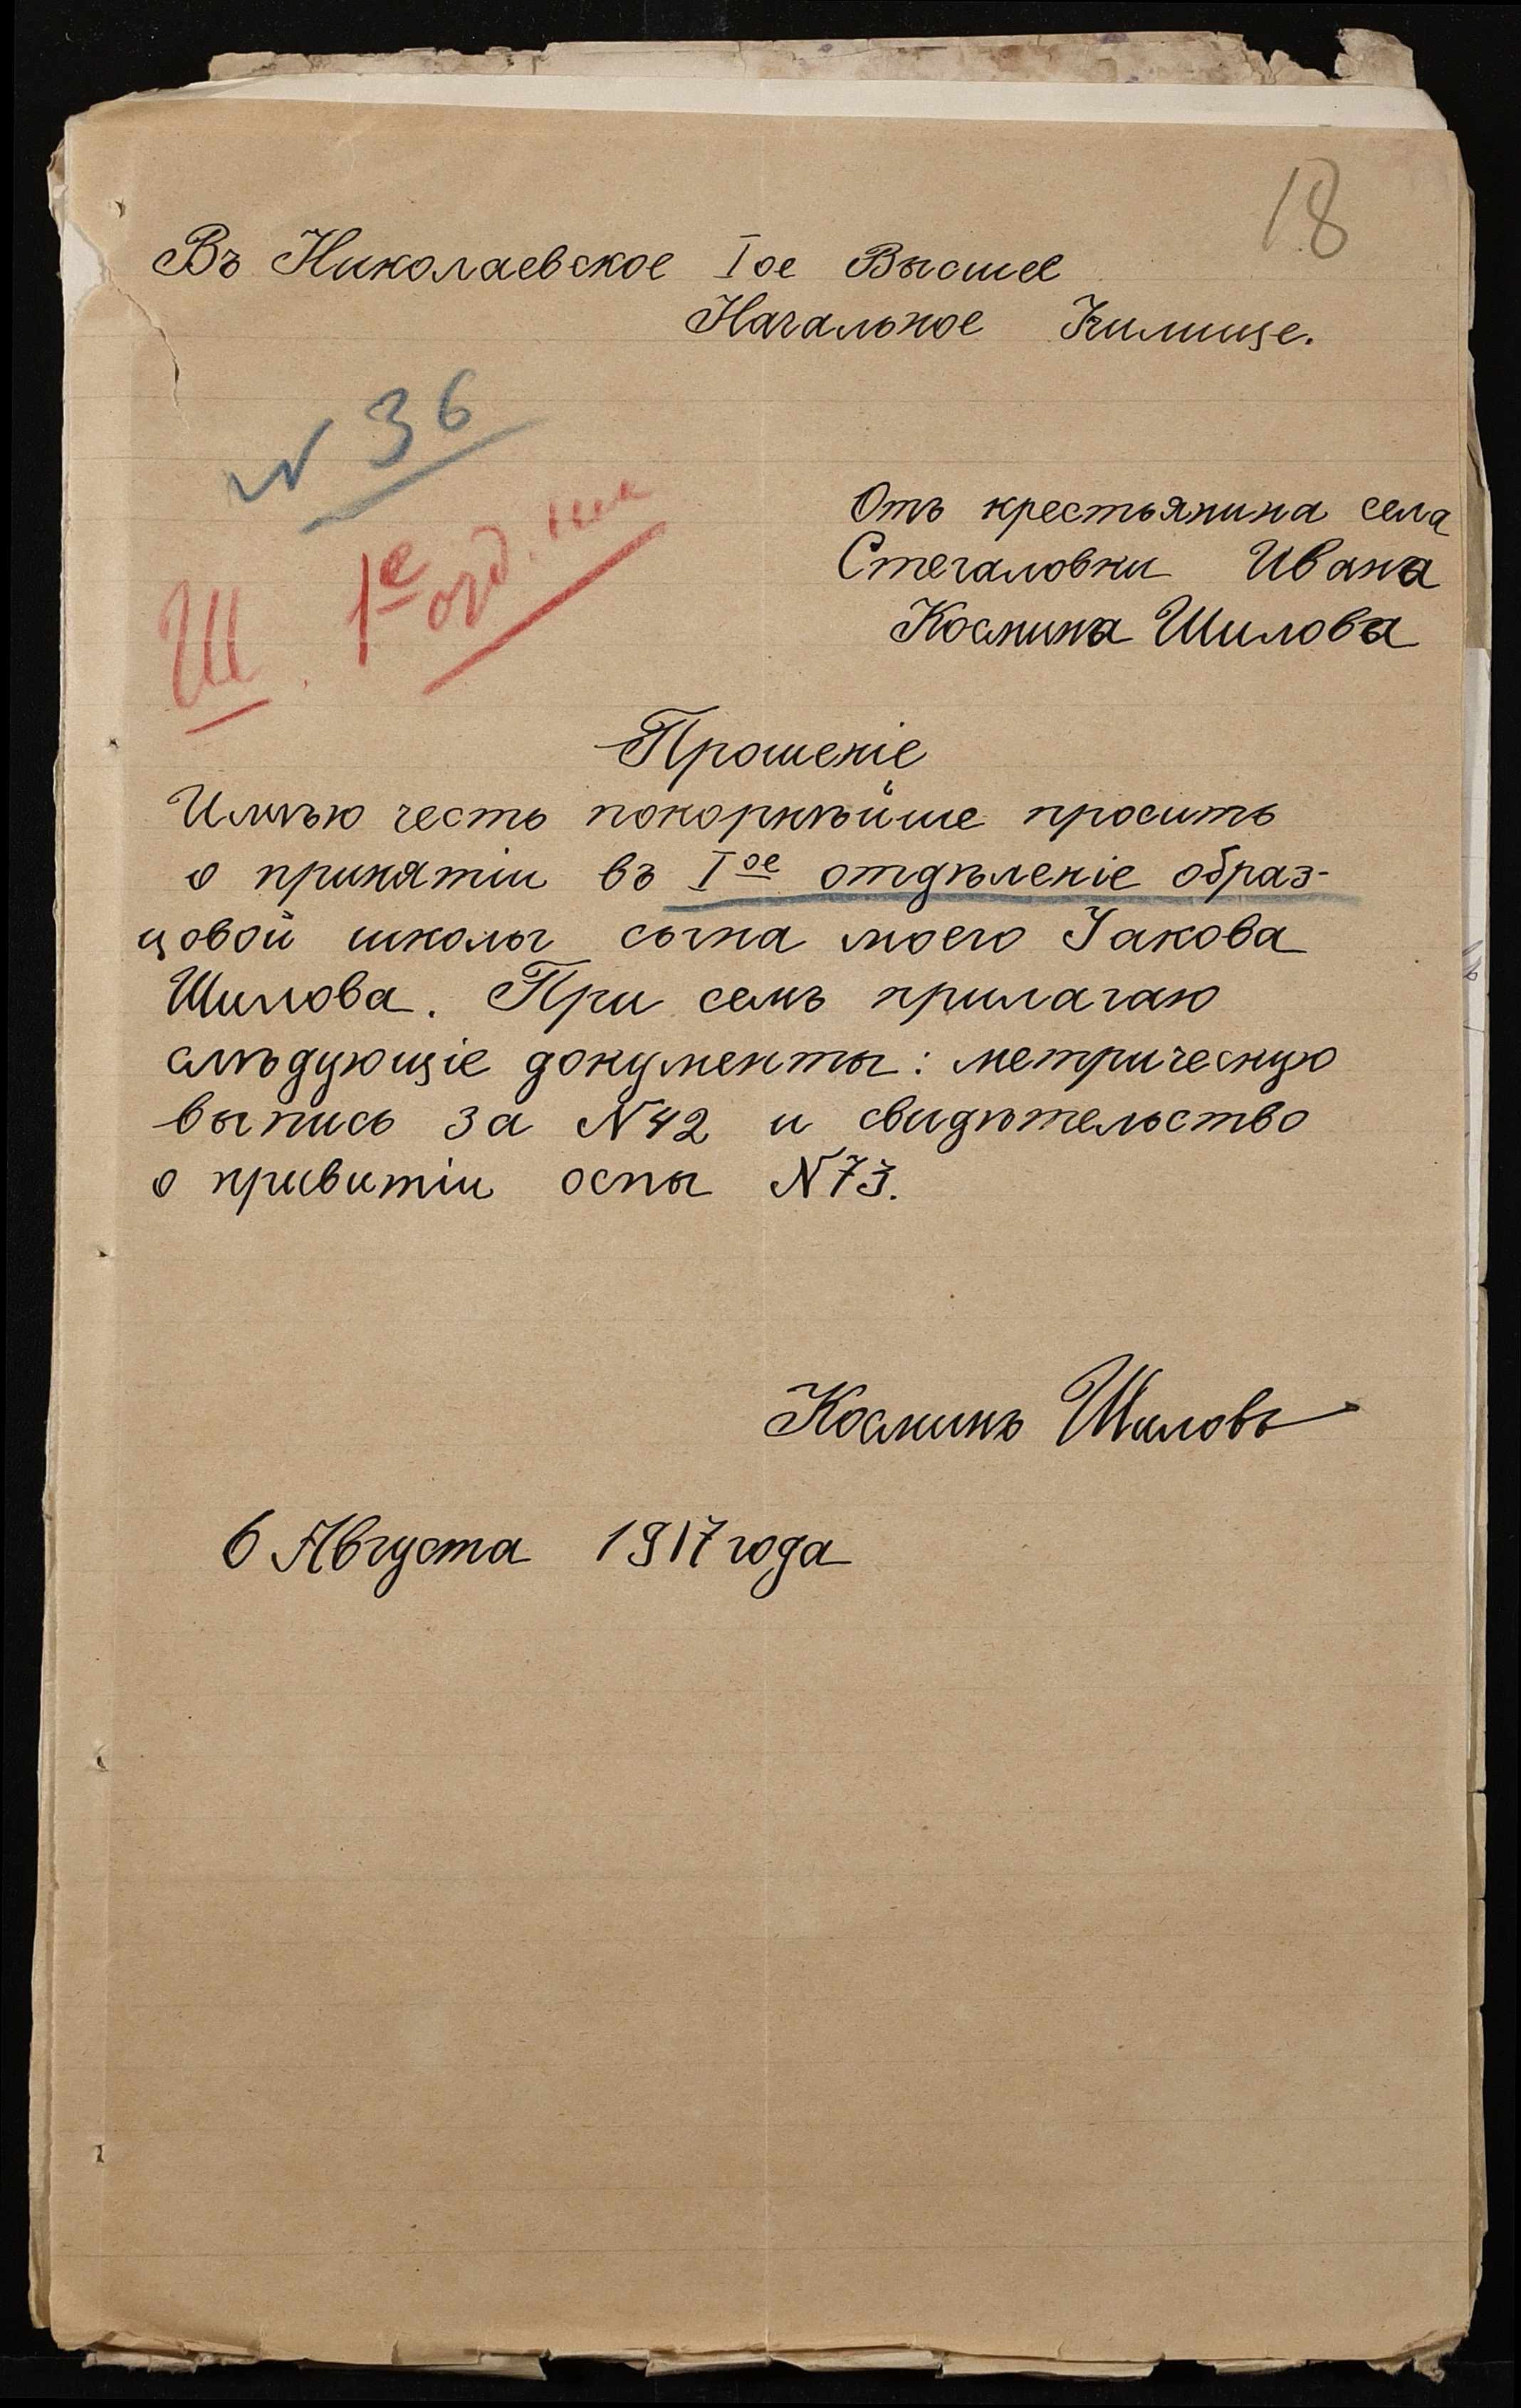 18
Въ Николаевское Iое Высшее
Начальное Училище.
N 36
Отъ крестьянина села
Стегаловки Ивана
Космина Шилова
Ш. 1е отд.
Прошеніе
Имѣю честь покорнѣйше просить
о принятіи въ Iое отдѣленіе образ-
цовой школы сына моего Іакова
Шилова. При семъ прилагаю
слѣдующіе документы: метрическую
выпись за N 42 и свидѣтельство
о привитіи оспы N 73.
Косминъ Шиловъ
6 Августа 1917 года